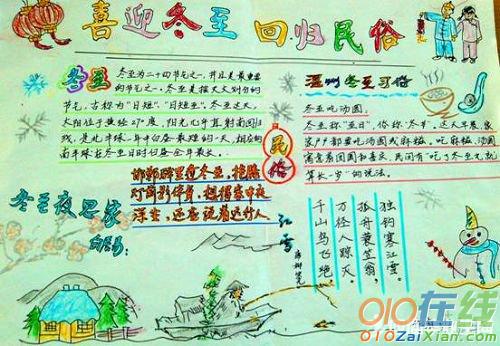 喜迎冬至 回归民俗
冬至
冬至为二十四节气之一,并且是最重要
的节气之一。冬至是按天文划分的
节气,古称为"日短"、"日短至"。冬至这天,
太阳位于黄经270度,阳光几乎直射南回归
线,是北半球一年中白昼最短的一天,相应的
南半球在冬至日时白昼全年最长。
温州冬至习俗
冬至吃汤圆
冬至称"亚日",俗称"冬节"。这天早晨,家
家户都要吃汤圆或麻糍。吃麻糍、汤圆
寓意着团圆和喜庆。民间有"吃了冬至丸就
算长一岁"的说法。
民俗
冬至夜思家
白居易
邯郸驿里逢冬至,抱膝
灯前影伴身。想得家中夜
深坐,还应说着远行人
江雪
唐柳宗元
千山鸟飞绝
万径人踪灭
孤舟蓑笠翁,
独钓寒江雪。
010在线
010zaixian.com